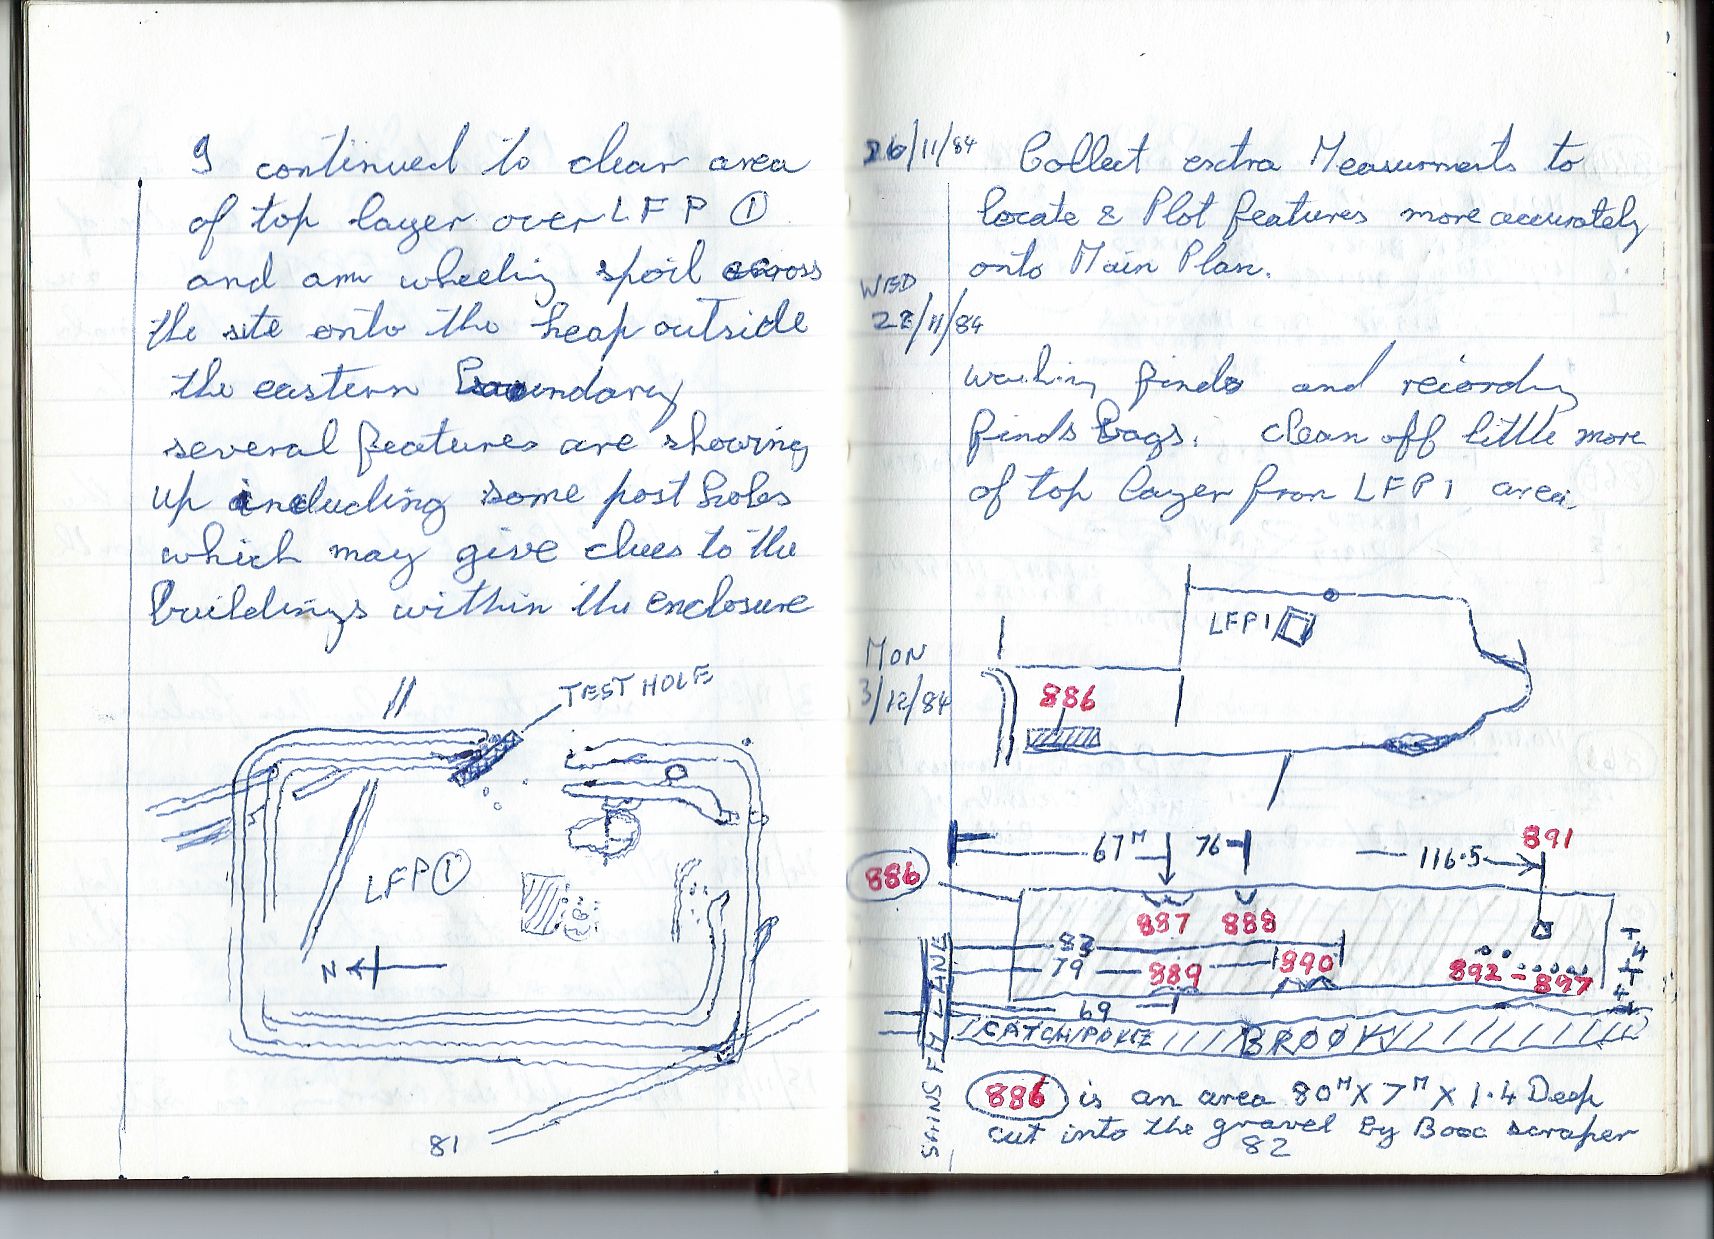 I continued to clear area
of top layer over LFP ①
and am wheeling spoil across
the site onto the heap outside
the eastern Boundary
several features are showing
up including some post holes
which may give clues to the
buildings within the enclosure
TEST HOLE
LFP①
N
81
26/11/84 Collect extra Measurments to
locate & Plot features more accurately
onto Main Plan.
WED
28/11/84
washing finds and recording
finds Bags. Clean off little more
of top layer from LFP1 area.
LFP1
MON
3/12/84
886
67M 76 116.5 891
886
887 888
83
79 889 890 892 - 897
69
CATCHPOKE BROOK
FM LANE
886 is an area 80M X 7M X 1.4 Deep
cut into the gravel by Box scraper
82